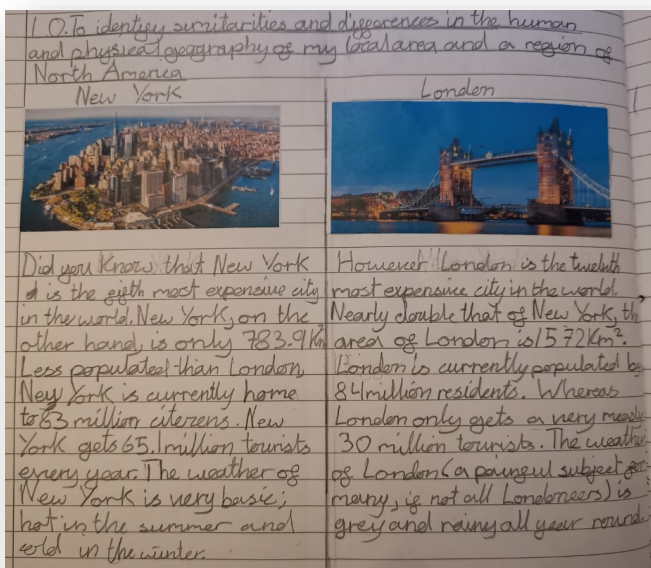 LO. To identify similarities and differences in the human
and physical geography of my local area and a region of
North America
New York
Did you know that New York
is the fifth most expensive city
in the world. New York, on the
other hand, is only 783.9 Km²
Less populated than London,
New York is currently home
to 8.3 million citezens. New
York gets 65.1 million tourists
every year. The weather of
New York is very basic;
hot in the summer and
cold in the winter.
London
However London is the twelth
most expensive city in the world.
Nearly double that of New York, th
area of London is 1572 Km².
London is currently populated by
8.4 million residents. Whereas
London only gets a very measly
30 million tourists. The weather
of London (a painful subject for
many, if not all Londoneers) is
grey and rainy all year round.